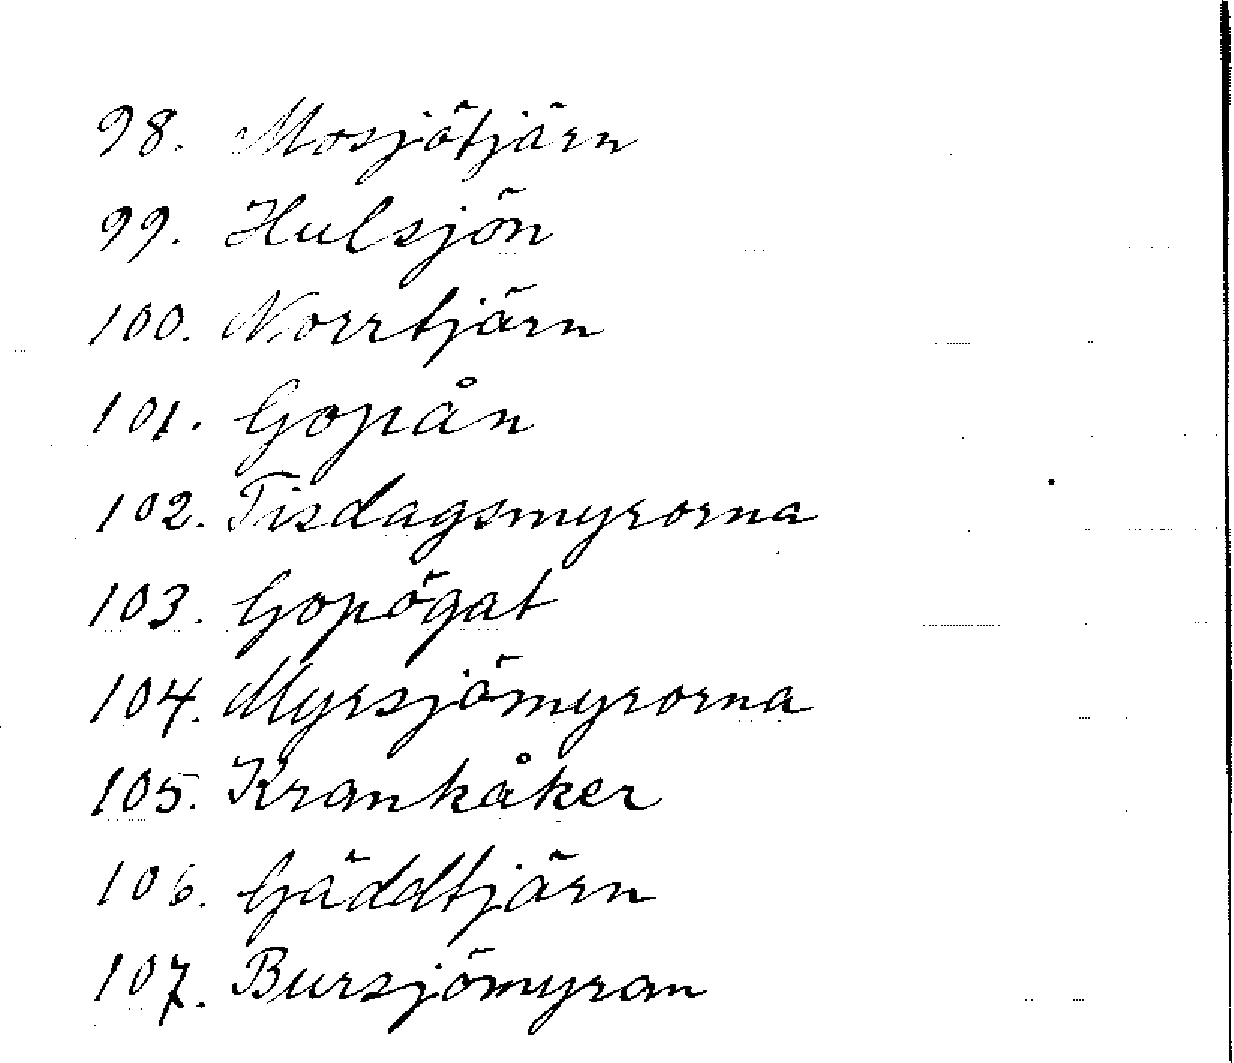 98. Mosjötjärn
99. Hulsjön
100. Norrtjärn
101. Gopån
102. Tisdagsmyrorna
103. Gopögat
104. Myrsjömyrorna
105. Krankåker
106. Gäddtjärn
107. Bursjömyran